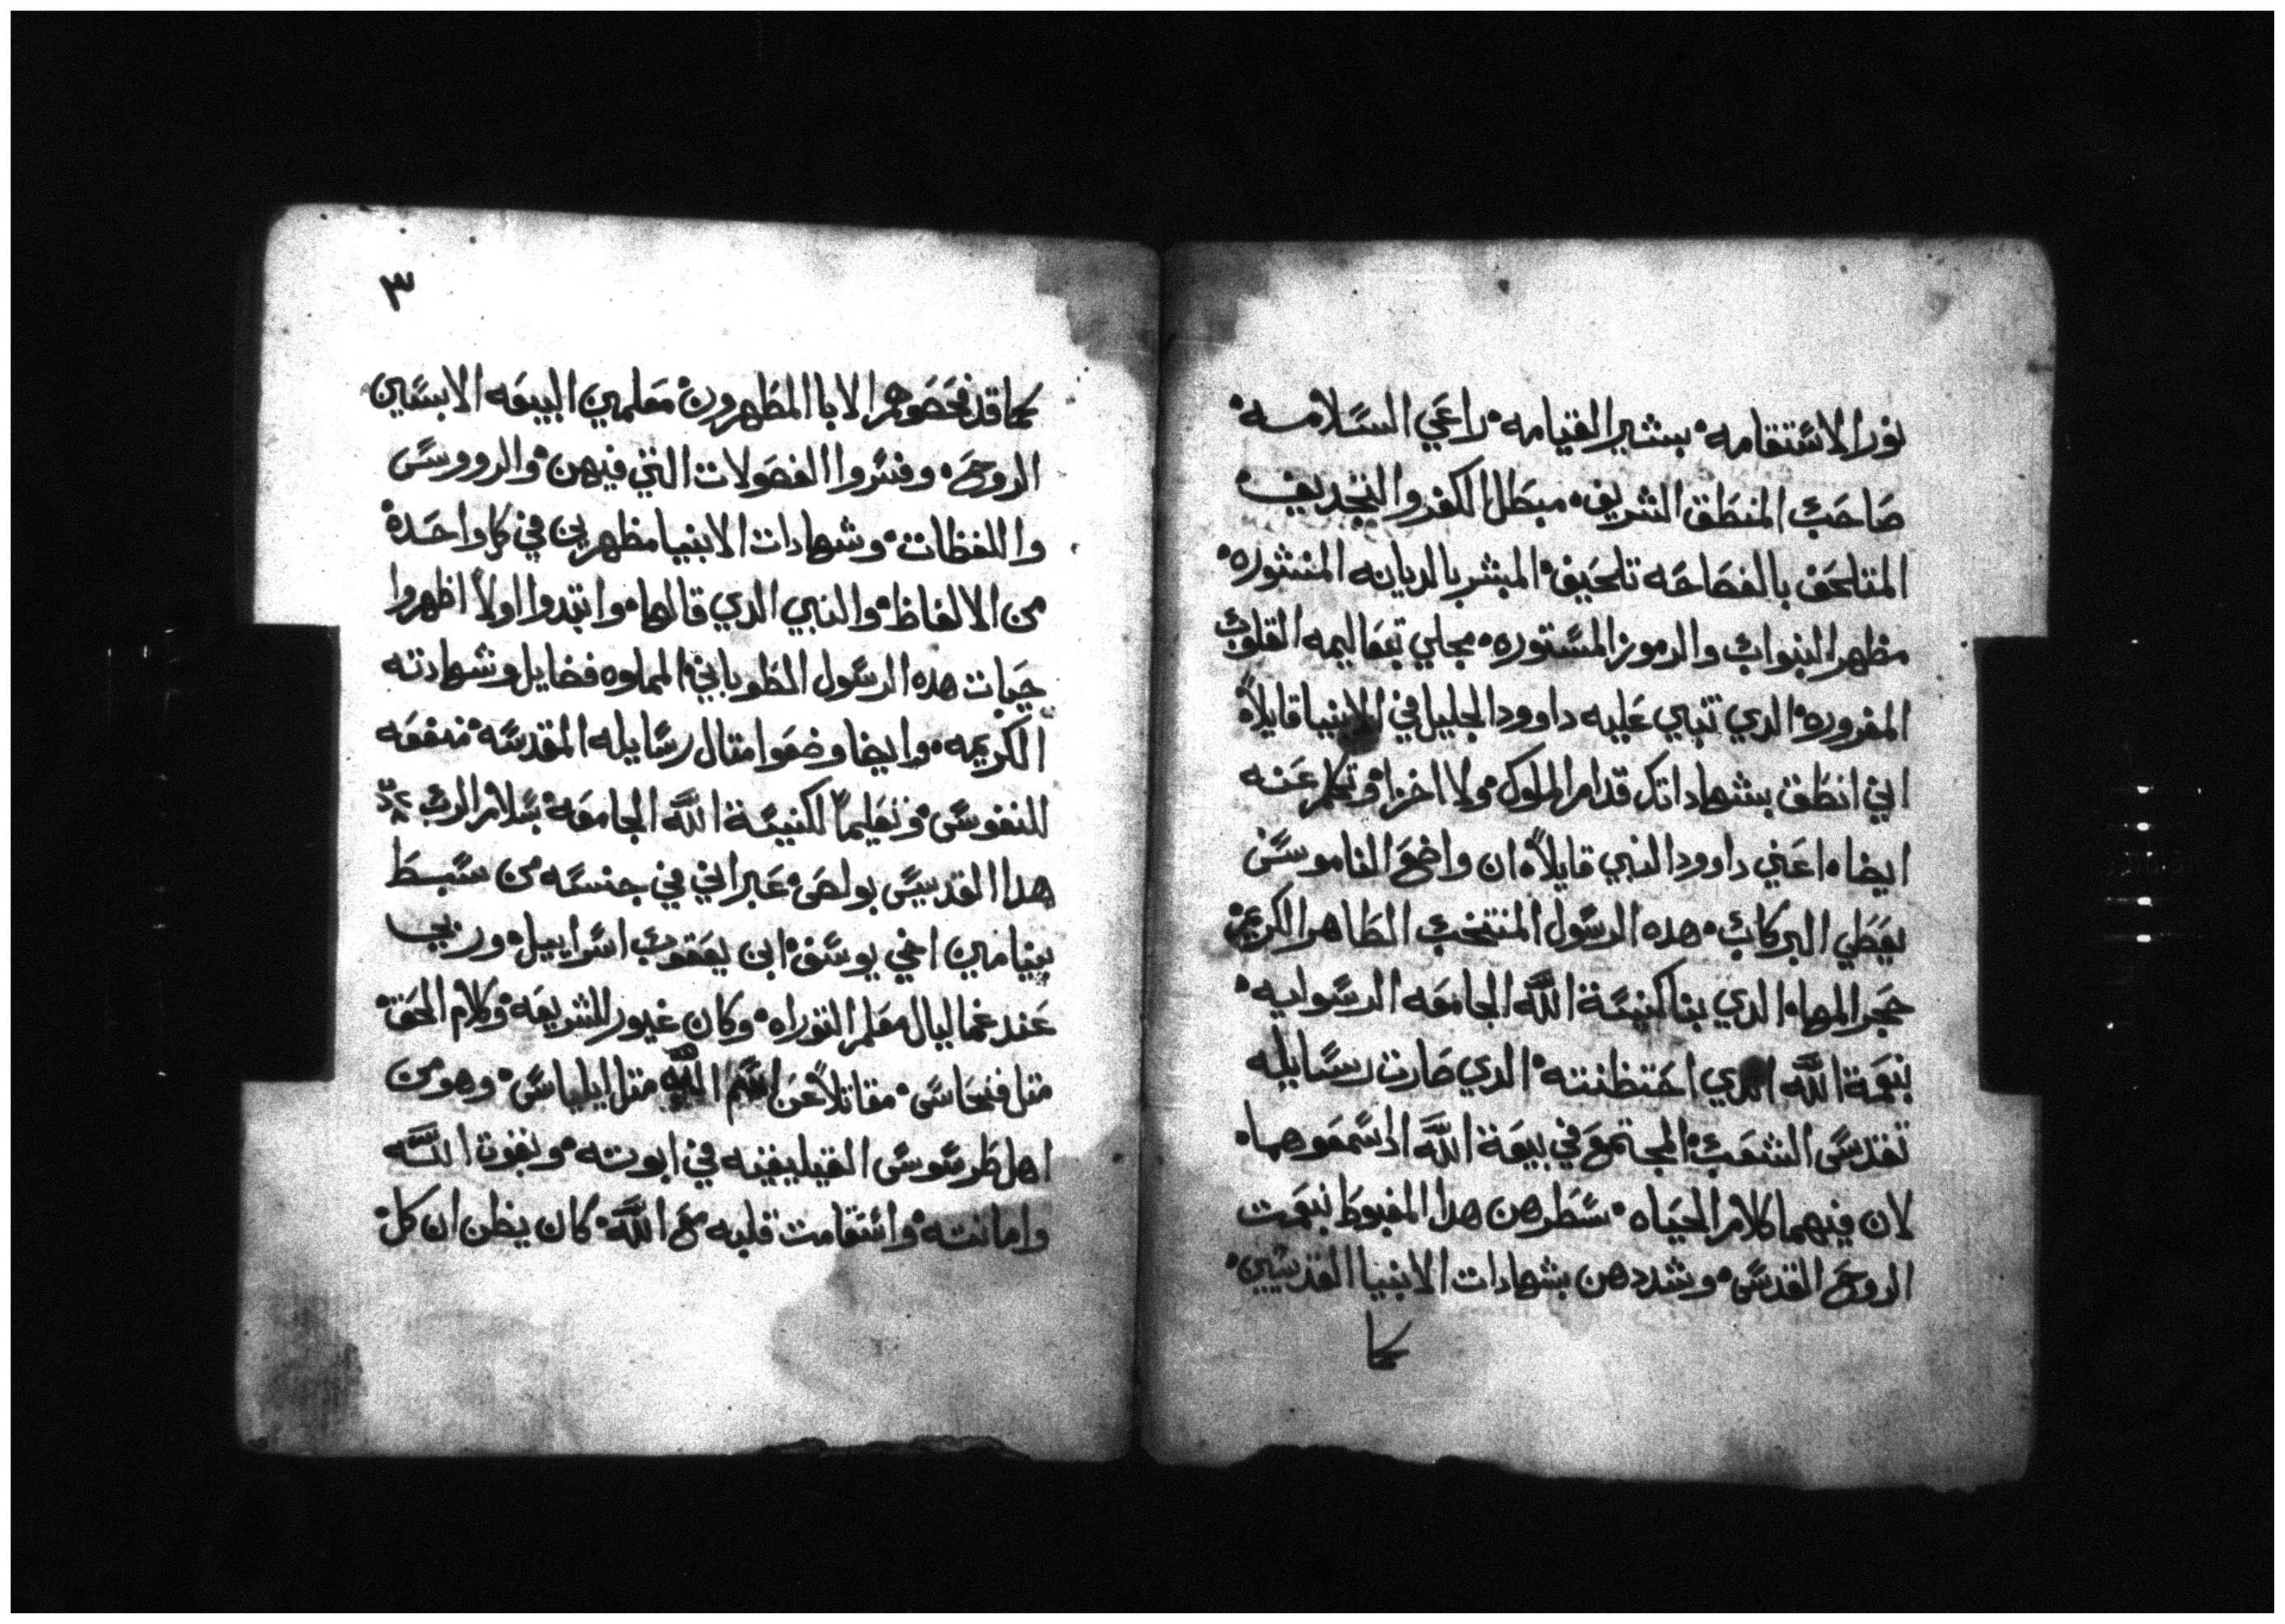 نور الاستقامه بشير القيامه راعي السلامه
صاحب المنطق الشريف مبطل الكفر والتجديف
المتلحف بالفصاحه تلحيف المبشر بالديانه المنشوره
مظهر النبوات والرموز المستوره مجلي بتعاليمه القلوب
المغروره الدي تنبي عليه داوود الجليل في الابنيا قايلاً
اني انطق بشهاداتك قدام الملوك ولا اخزا وتكلم عنه
ايضا اعني داوود النبي قايلاً ان واضع الناموس
يعطي البركات هده الرسول المنتخب الطاهر الكريم
حجر المها الدي بنا كنيسة الله الجامعه الرسوليه
بنعمة الله الدي احتظنته الدي صارت رسايله
تقدس الشعب المجتمع في بيعة الله ادا سمعوهما
لان فيهما كلام الحياه سطرهن هدا المغبوط بنعمت
الروح القدس وشددهن بشهادات الابنيا القديسين
كما
٣
كما قد فحصوهم الابا المطهرون معلمين البيعه الابسين
الروح وفسروا الفصولات التي فيهن والرووس
واللفظات وشهادات الابنيا مظهرين في كل واحدة
من الالفاظ والنبي الدي قالها وابتدوا اولاً اظهروا
حيات هده الرسول الطوباني المملوه فضايل وشهادته
الكريمه وايضا وضعوا امتال رسايله المقدسه منفعه
للنفوس وتعليماً لكنيسة الله الجامعة بسلام الرب
هدا القديس بولص عبراني في جنسه من سبط
بينيامين اخي يوسف ابن يعقوب اسراييل وربي
عند غماليال معلم التوراه وكان غيور للشريعه وكلام الحق
متل فنحاس مقاتلاً عن اسم الله متل ايلياس وهو من
اهل طرسوس القيليقيه في ابوته وبقوة الله
وامانته واستقامت قلبه مع الله كان يظن ان كل